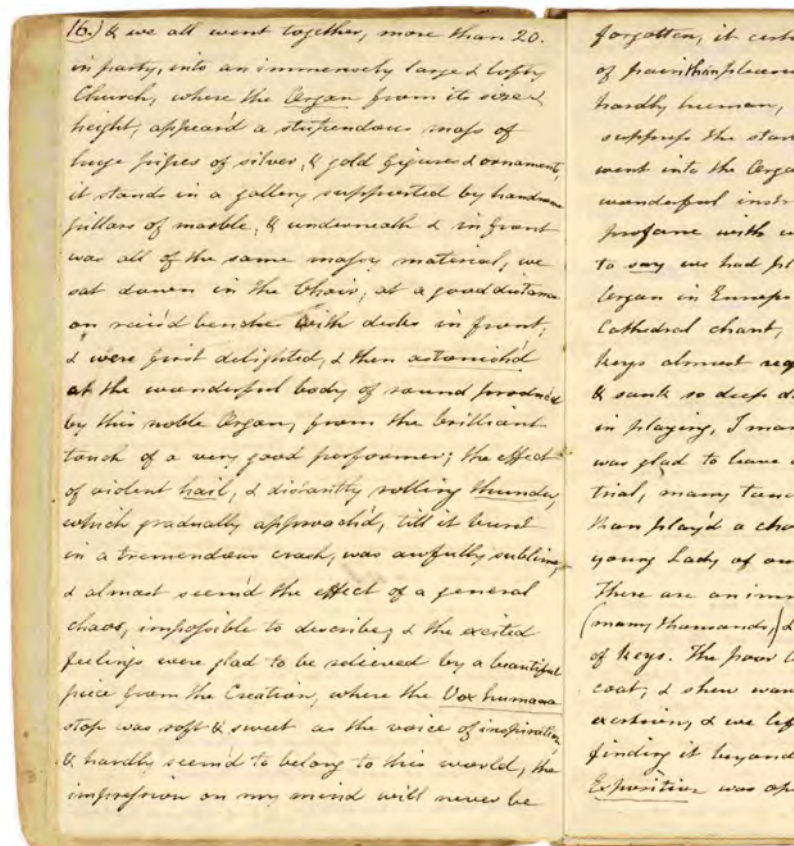 16.) & we all went together, more than 20.
in party, into an immensely large & lofty
Church, where the Organ from its size &
height, appear'd a stupendous mass of
huge pipes of silver, & gold figures & ornaments,
it stands in a gallery supported by handsome
pillars of marble, & underneath & in front
was all of the same massy material, we
sat down in the Choir, at a good distance
on rais'd benches with desks in front,
& were first delighted, & then astonish'd
at the wonderful body of sound produc'd
by this noble Organ, from the brilliant
touch of a very good performer; the effect
of violent hail, & distantly rolling thunder,
which gradually approach'd, till it burst
in a tremendous crash, was awfully sublime,
& almost seem'd the effect of a general
chaos, impossible to describe, & the excited
feelings were glad to be relieved by a beautiful
piece from the Creation, where the Vox humana
stop was soft & sweet as the voice of inspiration,
& hardly seem'd to belong to this world, the
impression on my mind will never be
forgotten, it
of pain than
hardly human,
suppress the
went into the
wonderful
profane with
to say we had
Organ in Europe
Cathedral chant,
keys almost
& sank so deep
in playing, I
was glad to leave
trial, many
than play'd a
young Lady of
There are an
(many thousands,)
of keys. The poor
coat, & shew
exertion, & we
finding it beyond
Exposition was